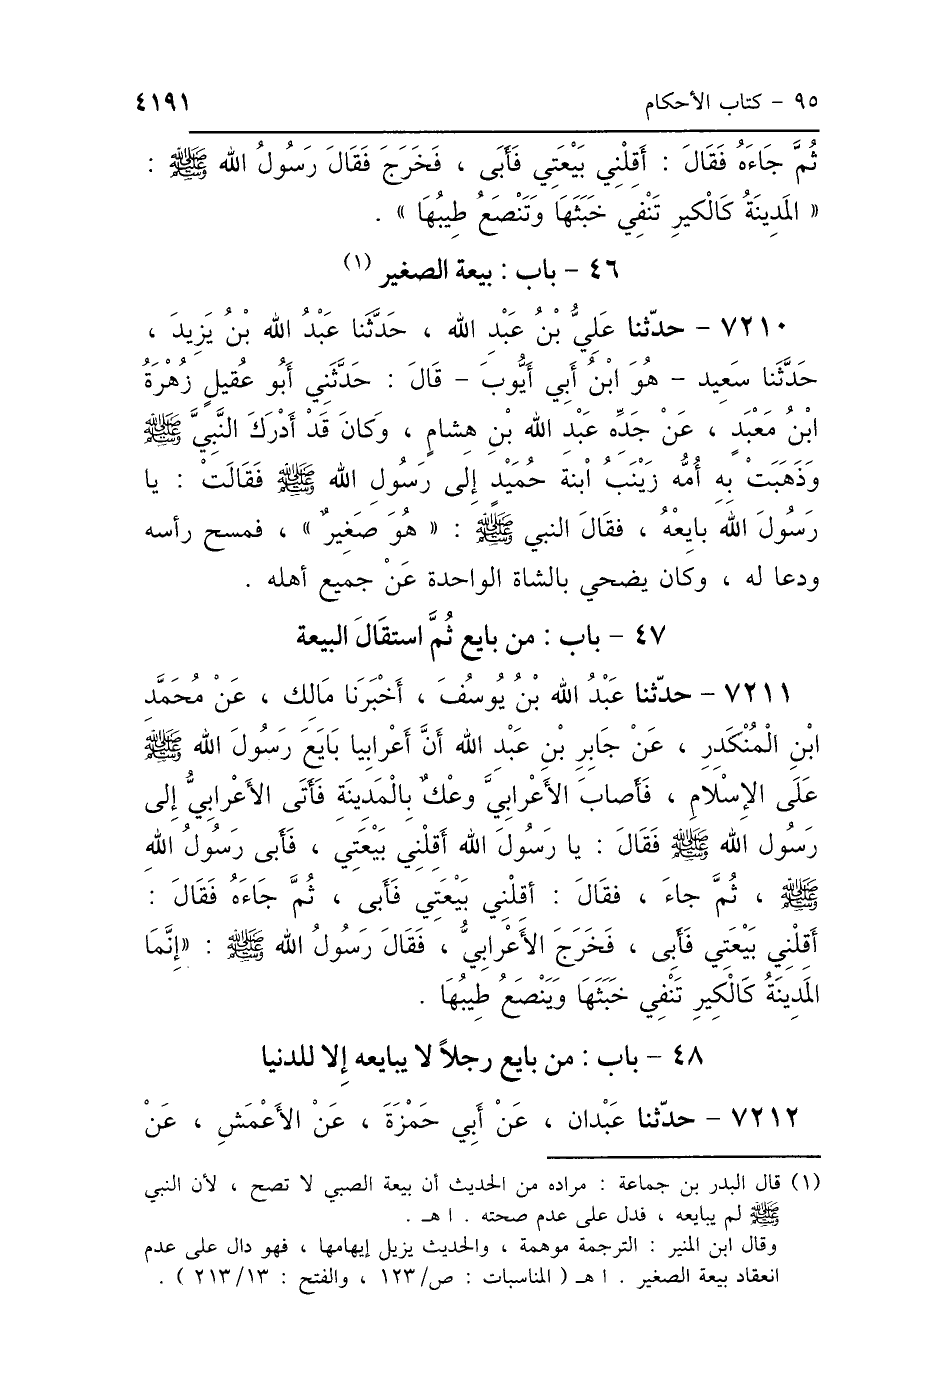 ٩٥ - كتاب الأحكام ٤١٩١
ثُمَّ جَاءَهُ فَقَالَ : أَقِلْنِي بَيْعَتِي فَأَبَى ، فَخَرَجَ فَقَالَ رَسُولُ الله ﷺ :
« المَدِينَةُ كَالْكِيرِ تَنْفِي خَبَثَهَا وَتَنْصَعُ طِيبُهَا » .
٤٦ - باب : بيعة الصغير (١)
٧٢١٠ - حدّثنا عَلِيُّ بْنُ عَبْدِ الله ، حَدَّثَنا عَبْدُ الله بْنُ يَزِيدَ ،
حَدَّثَنا سَعِيد - هُوَ ابْنُ أَبي أَيُّوبَ - قَالَ : حَدَّثَنِي أَبُو عَقيلٍ زُهْرَةُ
ابْنُ مَعْبَدٍ ، عَنْ جَدِّهِ عَبْدِ الله بْنِ هشامٍ ، وَكانَ قَدْ أَدْرَكَ النَّبِيَّ ﷺ
وَذَهَبَتْ بِهِ أُمُّه زَيْنَبُ ابنة حُمَيْدٍ إلى رَسُولِ الله ﷺ فَقَالَتْ : يا
رَسُولَ الله بايِعْهُ ، فقَالَ النبي ﷺ : « هُوَ صَغِيرٌ » ، فمسح رأسه
ودعا له ، وكان يضحي بالشاة الواحدة عَنْ جميع أهله .
٤٧ - باب : من بايع ثُمَّ استقَالَ البيعة
٧٢١١ - حدّثنا عَبْدُ الله بْنُ يُوسُفَ ، أَخْبَرَنا مَالِك ، عَنْ مُحَمَّدِ
ابْنِ الْمُنْكَدِرِ ، عَنْ جَابِرِ بْنِ عَبْدِ الله أَنَّ أَعْرابيا بَايَعَ رَسُولَ الله ﷺ
عَلَى الإِسْلامِ ، فَأَصابَ الأَعْرابيَّ وعْكٌ بِالْمَدِينَةِ فَأَتَى الأَعْرابِيُّ إِلى
رَسُولِ الله ﷺ فَقَالَ : يا رَسُولَ الله أَقِلْنِي بَيْعَتِي ، فَأَبى رَسُولُ الله
ﷺ ، ثُمَّ جاءَ ، فقَالَ : أقِلْنِي بَيْعَتِي فَأَبى ، ثُمَّ جَاءَهُ فَقَالَ :
أَقِلْنِي بَيْعَتِي فَأَبى ، فَخَرَجَ الأَعْرابِيُّ ، فَقَالَ رَسُولُ الله ﷺ : «إِنَّمَا
المَدِينَةُ كَالْكِيرِ تَنْفِي خَبَثَهَا وَيَنْصَعُ طِيبُهَا .
٤٨ - باب : من بايع رجلاً لا يبايعه إلا للدنيا
٧٢١٢ - حدّثنا عَبْدان ، عَنْ أَبِي حَمْزَةَ ، عَنْ الأَعْمَشِ ، عَنْ
(١) قال البدر بن جماعة : مراده من الحديث أن بيعة الصبي لا تصح ، لأن النبي
ﷺ لم يبايعه ، فدل على عدم صحته . ا هـ .
وقال ابن المنير : الترجمة موهمة ، والحديث يزيل إيهامها ، فهو دال على عدم
انعقاد بيعة الصغير . ا هـ ( المناسبات : ص/١٢٣ ، والفتح : ٢١٣/١٣ ) .